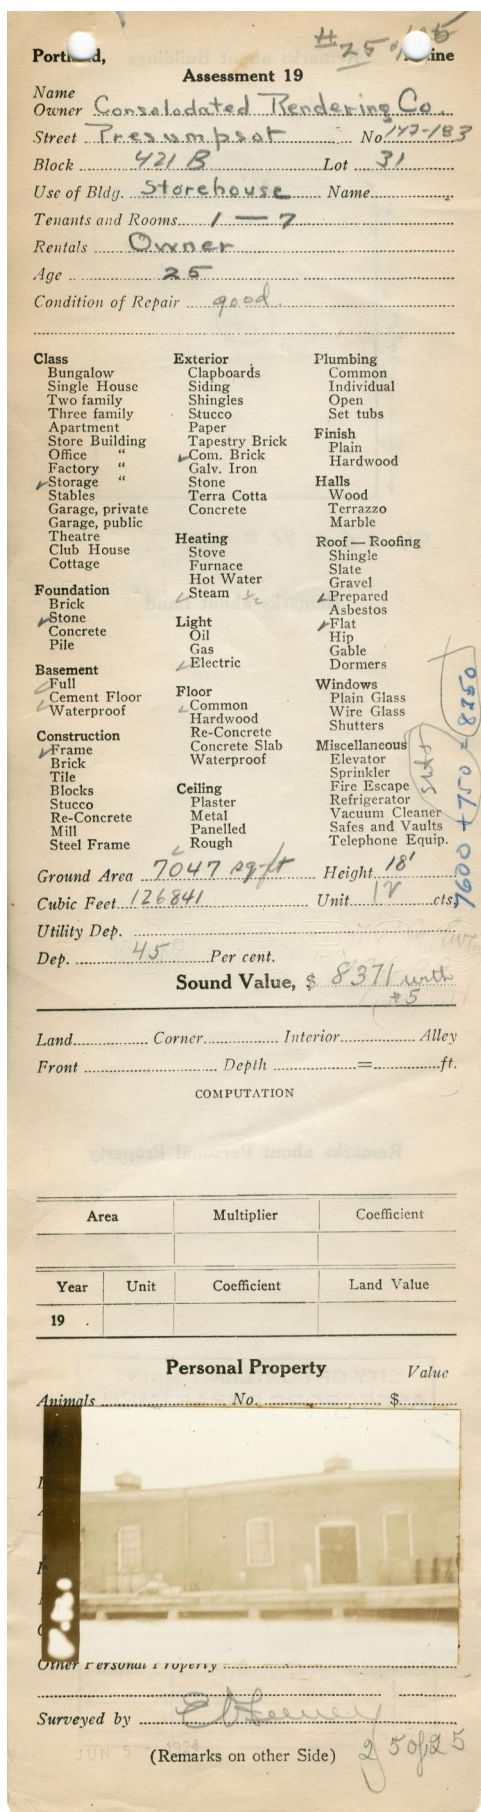 Portland, Maine
Assessment 19
Name
Owner Consolodated Rendering Co.
Street Presumpsot No 147-183
Block 421 B Lot 31
Use of Bldg. Storehouse Name
Tenants and Rooms 1 — 7
Rentals Owner
Age 25
Condition of Repair good.
Class
Bungalow
Single House
Two family
Three family
Apartment
Store Building
Office "
Factory "
✓Storage "
Stables
Garage, private
Garage, public
Theatre
Club House
Cottage
Foundation
Brick
✓Stone
Concrete
Pile
Basement
✓Full
Cement Floor
✓Waterproof
Construction
✓Frame
Brick
Tile
Blocks
Stucco
Re-Concrete
Mill
Steel Frame
Exterior
Clapboards
Siding
Shingles
Stucco
Paper
Tapestry Brick
✓Com. Brick
Galv. Iron
Stone
Terra Cotta
Concrete
Heating
Stove
Furnace
Hot Water
✓Steam ½
Light
Oil
Gas
✓Electric
Floor
✓Common
Hardwood
Re-Concrete
Concrete Slab
Waterproof
Ceiling
Plaster
Metal
Panelled
✓Rough
Plumbing
Common
Individual
Open
Set tubs
Finish
Plain
Hardwood
Halls
Wood
Terrazzo
Marble
Roof — Roofing
Shingle
Slate
Gravel
✓Prepared
Asbestos
✓Flat
Hip
Gable
Dormers
Windows
Plain Glass
Wire Glass
Shutters
Miscellaneous
Elevator
Sprinkler
Fire Escape
Refrigerator
Vacuum Cleaner
Safes and Vaults
Telephone Equip.
7600 + 750 = 8350
Ground Area 7047 sq-ft Height 18'
Cubic Feet 126841 Unit 12 cts.
Utility Dep.
Dep. 45 Per cent.
Sound Value, $ 8371 with
#5
Land Corner Interior Alley
Front Depth = ft.
COMPUTATION
Area Multiplier Coefficient
Year Unit Coefficient Land Value
19 .
Personal Property Value
Animals No. $
Other Personal Property
Surveyed by
(Remarks on other Side) 25 of 25